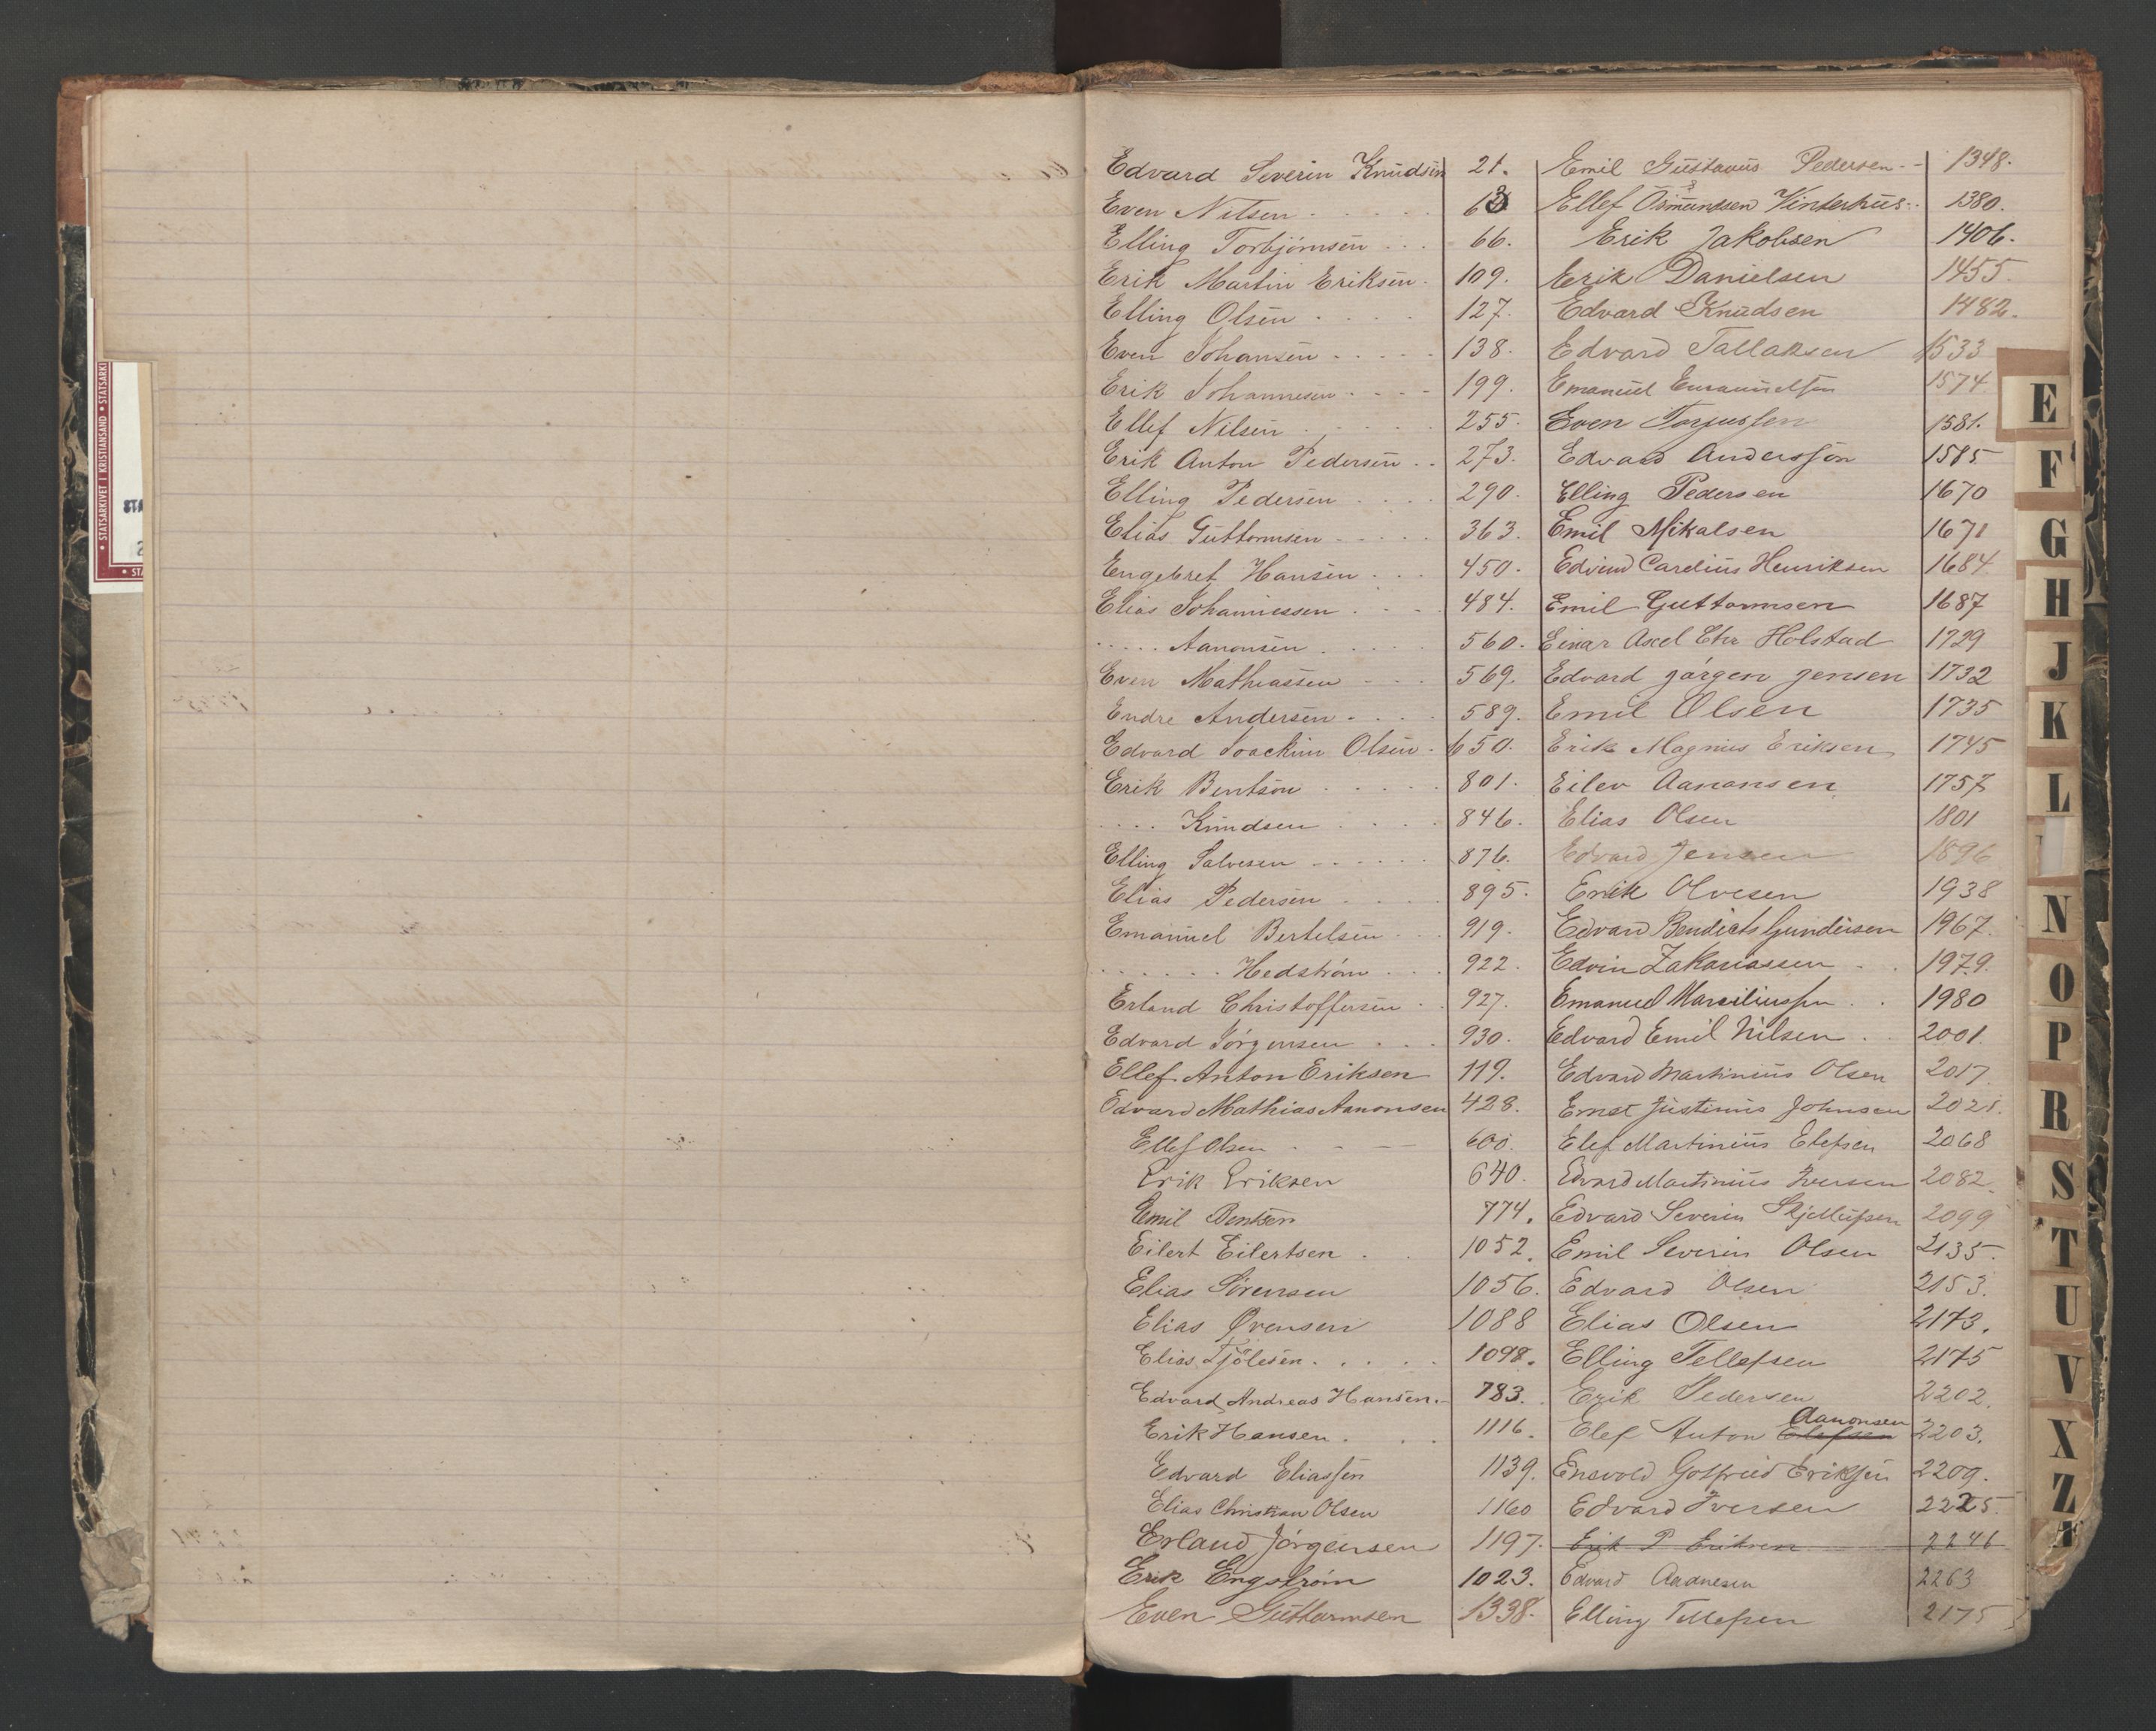 Edvard Severin Knudsen 21.
Even Nilsen 63
Elling Torbjörnsen 66.
Erik Martin Eriksen 109.
Elling Olsen 127.
Even Johansen 138.
Erik Johannesen 199.
Ellef Nilsen 255.
Erik Anton Pedersen 273.
Elling Pedersen 290.
Elias Guttormsen 363.
Engebret Hansen 450.
Elias Johannessen 484.
..... Aanonsen 560.
Even Mathiassen 569.
Endre Andersen 589.
Edvard Joachim Olsen 650.
Erik Bentson 801.
.... Knudsen 846.
Elling Salvesen 876.
Elias Pedersen 895.
Emanuel Bertelsen 919.
...... Hedström 922.
Erland Christoffersen 927.
Edvard Jörgensen 930.
Ellef Anton Eriksen 119.
Edvard Mathias Aanonsen 428.
Ellef Olsen 600.
Erik Eriksen 640.
Emil Bentsen 774.
Eilert Eilertsen 1052.
Elias Sörensen 1056.
Elias Örensen 1088
Elias 1098.
Edvard Andreas Hansen 783.
Erik Hansen 1116.
Edvard Eliassen 1139.
Elias Christian Olsen 1160
Erland Jörgensen 1197.
Erik Engström 1023.
Even Guttormsen 1338.
Emil Gustavus Pedersen 1348.
Ellef Osmundsen Vinterhus 1380.
Erik Jakobsen 1406.
Erik Danielsen 1455.
Edvard Knudsen 1482.
Edvard Tallaksen 1533
Emanuel Emanuelsen 1574
Even Torjussen 1581.
Edvard Anderssön 1585
Elling Pedersen 1670
Emil Mikalsen 1671
Edvind Carelius Henriksen 1684
Emil Guttormsen 1687
Einar Axel Chr Holstad 1729
Edvard Jörgen Jensen 1732
Emil Olsen 1735
Erik Magnus Eriksen 1745
Eilev Aanonsen 1757
Elias Olsen 1801
Edvard Jensen 1896
Erik Olvesen 1938
Edvard Bendicts Gundersen 1967.
Edvin Zakariassen 1979.
Emanuel Marsiliussen 1980
Edvard Emil Nilsen 2001.
Edvard Martinius Olsen 2017
Ernst Justinus Johnsen 2021.
Elef Martinius Elefsen 2068
Edvard Martinius Iversen 2082.
Edvard Severin 2099
Emil Severin Olsen 2135.
Edvard Olsen 2153.
Elias Olsen 2173.
Elling Tellefsen 2175
Erik Pedersen 2202.
Elef Anton Elefsen Aanonsen 2203.
Gotfried Eriksen 2209.
Edvard Iversen 2225.
Erik P Eriksen 2246
Edvard Aadnesen 2263
Elling Tellefsen 2175
E
F
G
H
J
K
L
N
O
P
R
S
T
U
V
X
Z
Æ
STATSARKIVET I KRISTIANSAND • STATSARKI